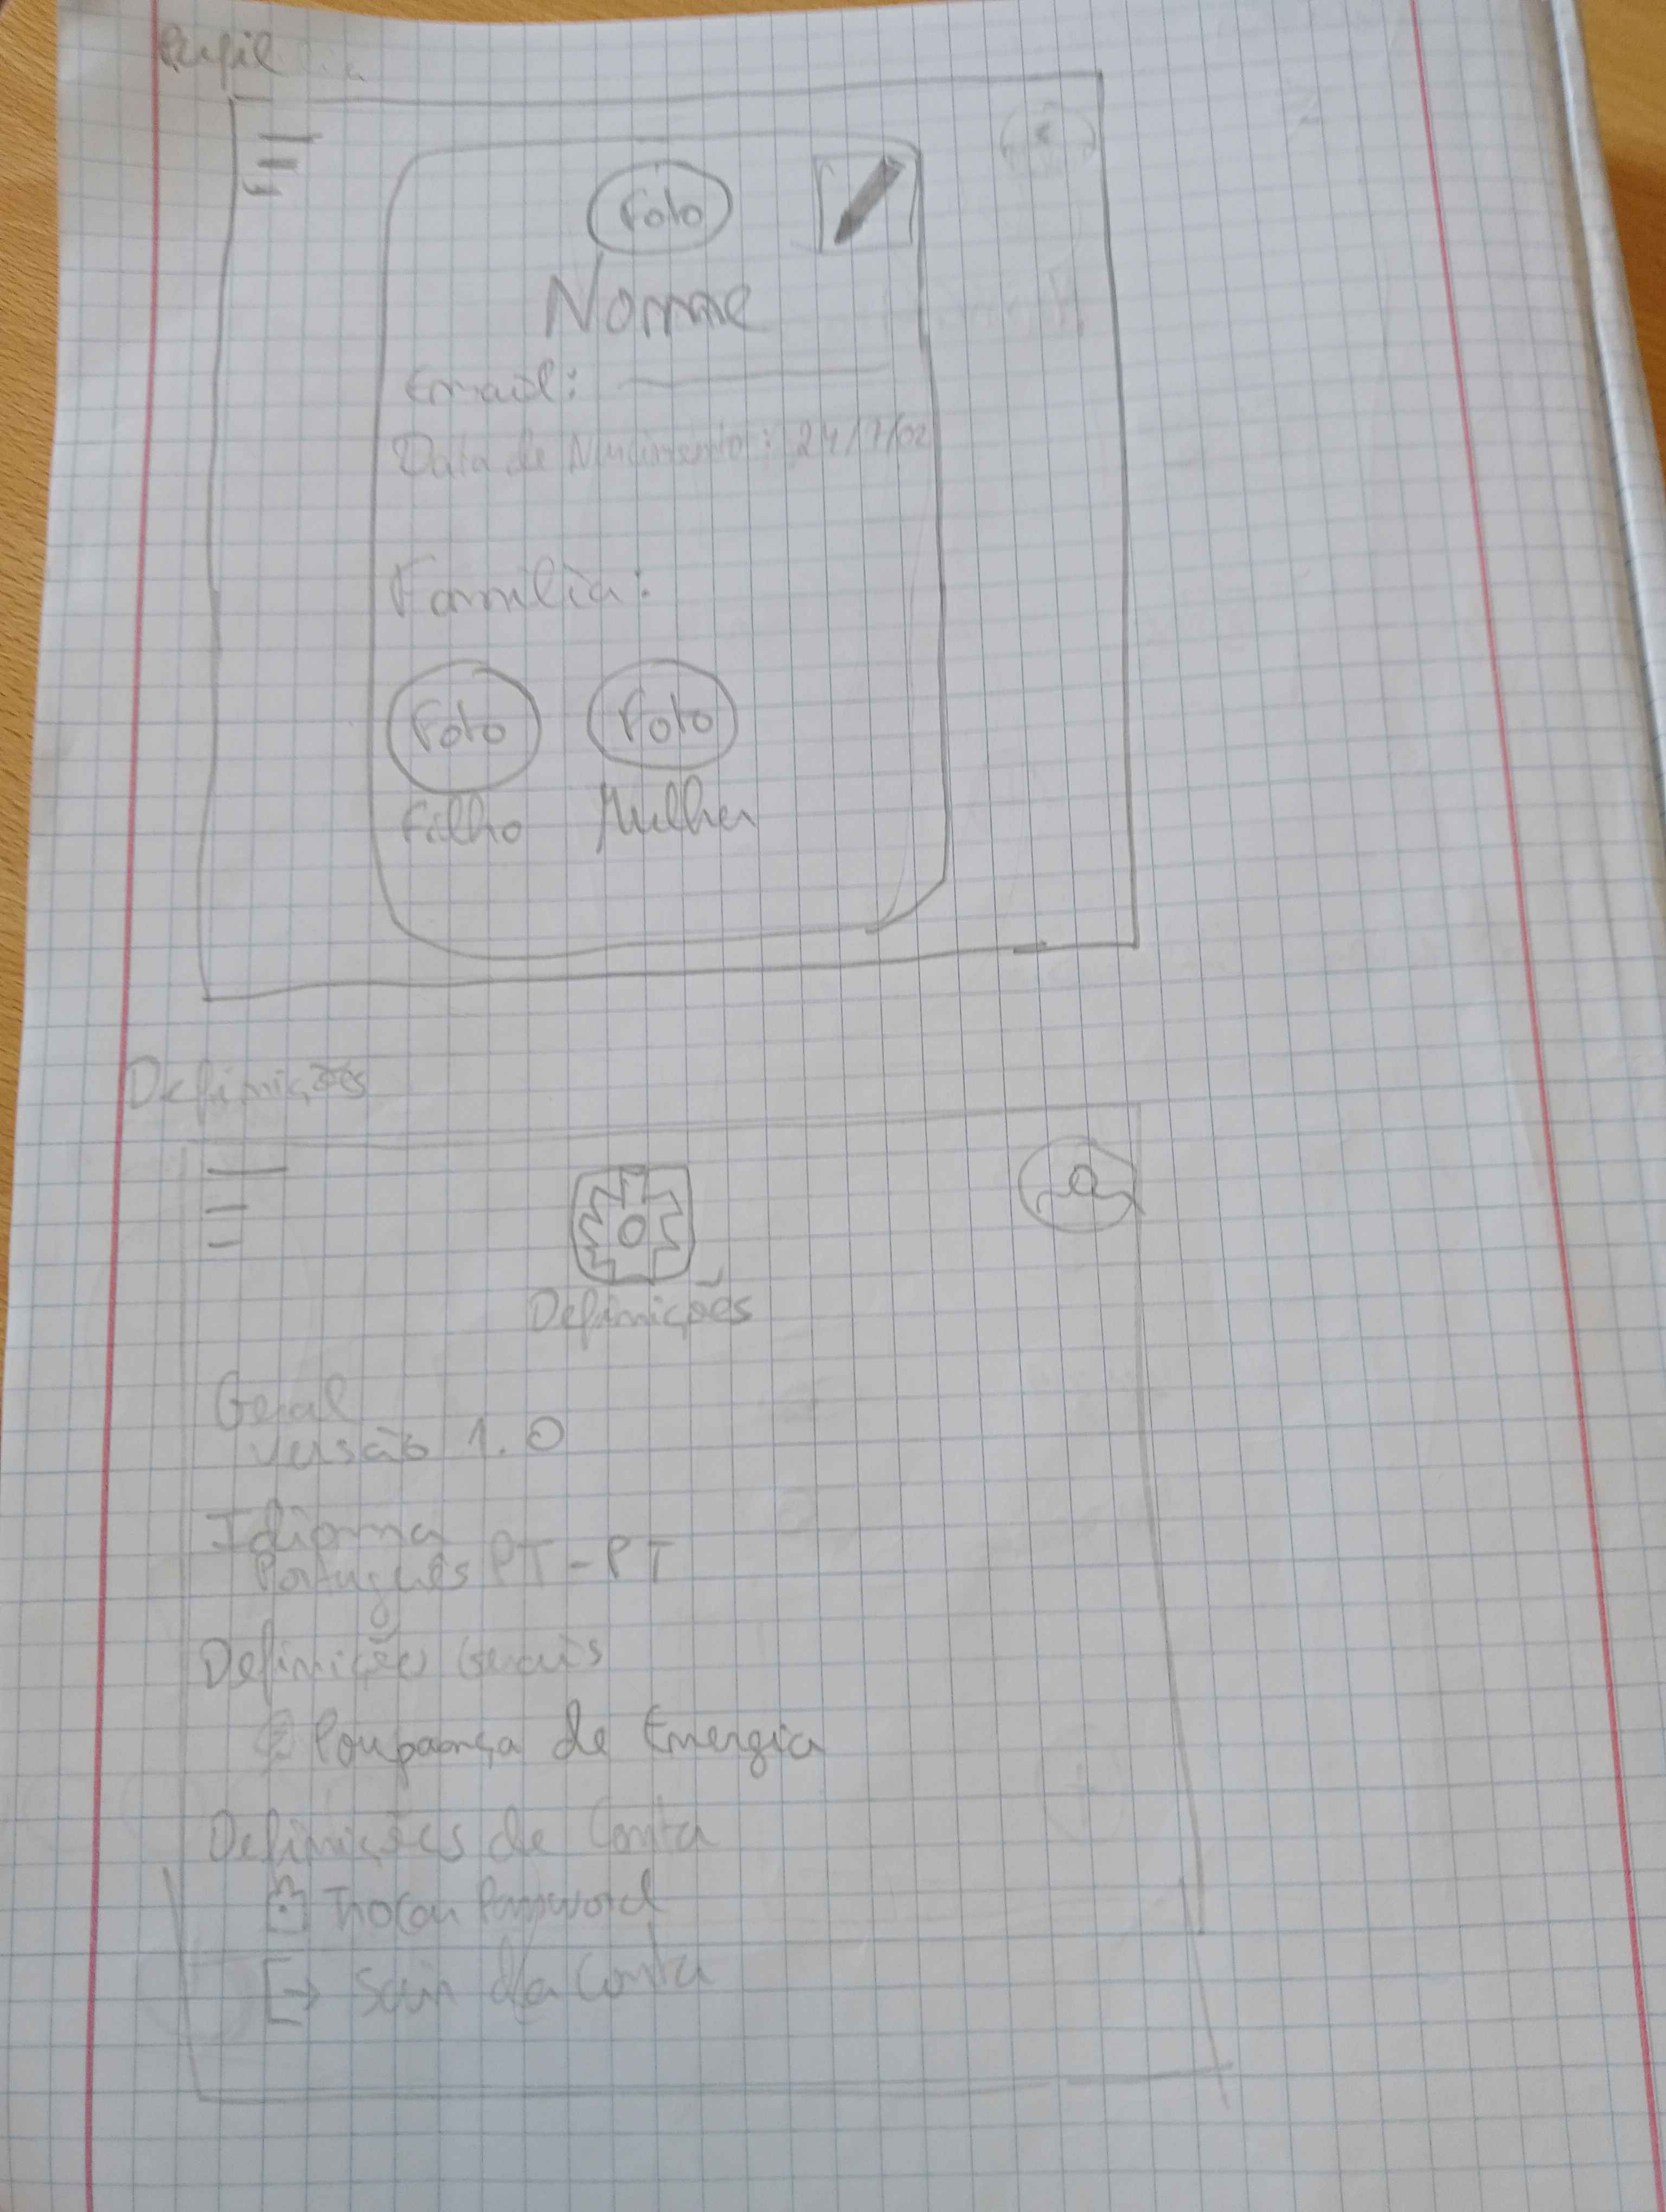 Perfil
Foto
Nome
Email:
Data de Nascimento: 24/7/02
Família:
Foto Foto
Filho Mulher
Definições
Definições
Geral
Versão 1.0
Idioma
Português PT-PT
Definição Gerais
Poupança de Energia
Definições de Conta
Trocar Password
Sair da Conta